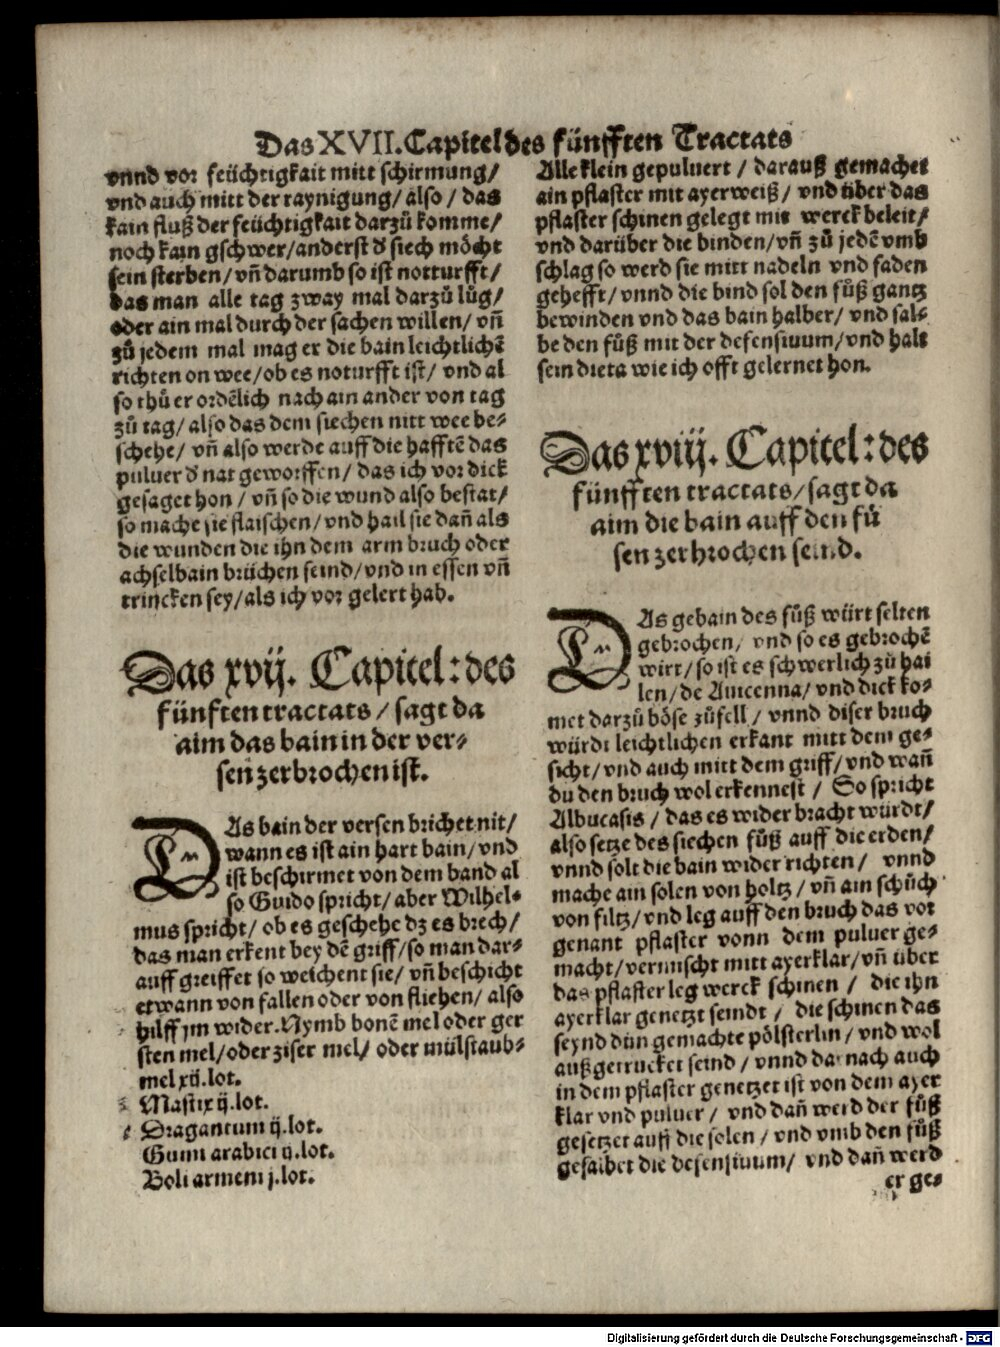 Das XVII. Capitel des fünfften Tractats
vnnd vor feüchtigkait mitt schirmung/
vnd auch mitt der raynigung/ also/ das
kain fluß der feüchtigkait darzů komme/
noch kain gschwer/anderst d̕ siech möcht
sein sterben/ vn̄ darumb so ist notturfft/
das man alle tag zway mal darzů lůg/
oder ain mal durch der sachen willen/ vn̄
zů jedem mal mag er die bain leichtlichē
richten on wee/ ob es noturfft ist/ vnd al
so thů er ordēlich nach ain ander von tag
zů tag/ also das dem siechen nitt wee be⸗
schehe/ vn̄ also werde auff die hafftē das
puluer d̕ nat geworffen/ das ich vor dick
gesaget hon/ vn̄ so die wund also bestat/
so mache sie flaischen/ vnd hail sie dan̄ als
die wunden die ihn dem arm bruch oder
achselbain brüchen seind/ vnd in essen vn̄
trincken sey/als ich vor gelert hab.
Das xvij. Capitel: des
fünften tractats / sagt da
aim das bain in der ver⸗
sen zerbrochen ist.
DAs bain der versen brichet nit/
wann es ist ain hart bain/ vnd
ist beschirmet von dem band al
so Guido spricht/ aber Wilhel⸗
mus spricht/ ob es geschehe dz es brech/
das man erkent bey dē griff/so man dar⸗
auff greiffet so weichent sie/ vn̄ beschicht
etwann von fallen oder von fliehen/ also
hilff jm wider. Nymb bonē mel oder ger
sten mel/oder ziser mel/ oder mülstaub⸗
mel xij.lot.
Mastix ij.lot.
Dragantum ij.lot.
Gumi arabici ij.lot.
Boli armeni j.lot.
Alle klein gepuluert / darauß gemachet
ain pflaster mit ayerweiß/ vnd über das
pflaster schinen gelegt mit werck beleit/
vnd darüber die binden/ vn̄ zů jedē vmb
schlag so werd sie mitt nadeln vnd faden
gehefft/ vnnd die bind sol den fůß gantz
bewinden vnd das bain halber/ vnd sal⸗
be den fůß mit der defensiuum/ vnd halt
sein dieta wie ich offt gelernet hon.
Das xviij. Capitel: des
fünfften tractats/ sagt da
aim die bain auff den fü
sen zerbrochen seind.
DAs gebain des fůß würt selten
gebrochen/ vnd so es gebrochē
wirt/ so ist es schwerlich zů hai
len/ de Auicenna/ vnd dick ko⸗
met darzů böse zůfell/ vnnd diser bruch
würdt leichtlichen erkant mitt dem ge⸗
sicht/ vnd auch mitt dem griff/ vnd wan̄
du den bruch wol erkennest / So spricht
Albucasis / das es wider bracht würdt/
also setze des siechen fůß auff die erden/
vnnd solt die bain wider richten / vnnd
mache ain solen von holtz/ vn̄ ain schůch
von filtz/ vnd leg auff den bruch das vor
genant pflaster vonn dem puluer ge⸗
macht/ vermischt mitt ayerklar/ vn̄ über
das pflaster leg werck schinen / die ihn
ayerklar genetzt seindt / die schinen das
seynd dün gemachte pölsterlin/ vnd wol
außgetrucket seind / vnnd dar nach auch
in dem pflaster genetzet ist von dem ayer
klar vnd puluer / vnd dan̄ werd der fůß
gesetzet auff die solen / vnd vmb den fůß
gesalbet die defensiuum/ vnd dan̄ werd
er ge⸗
Digitalisierung gefördert durch die Deutsche Forschungsgemeinschaft - DFG